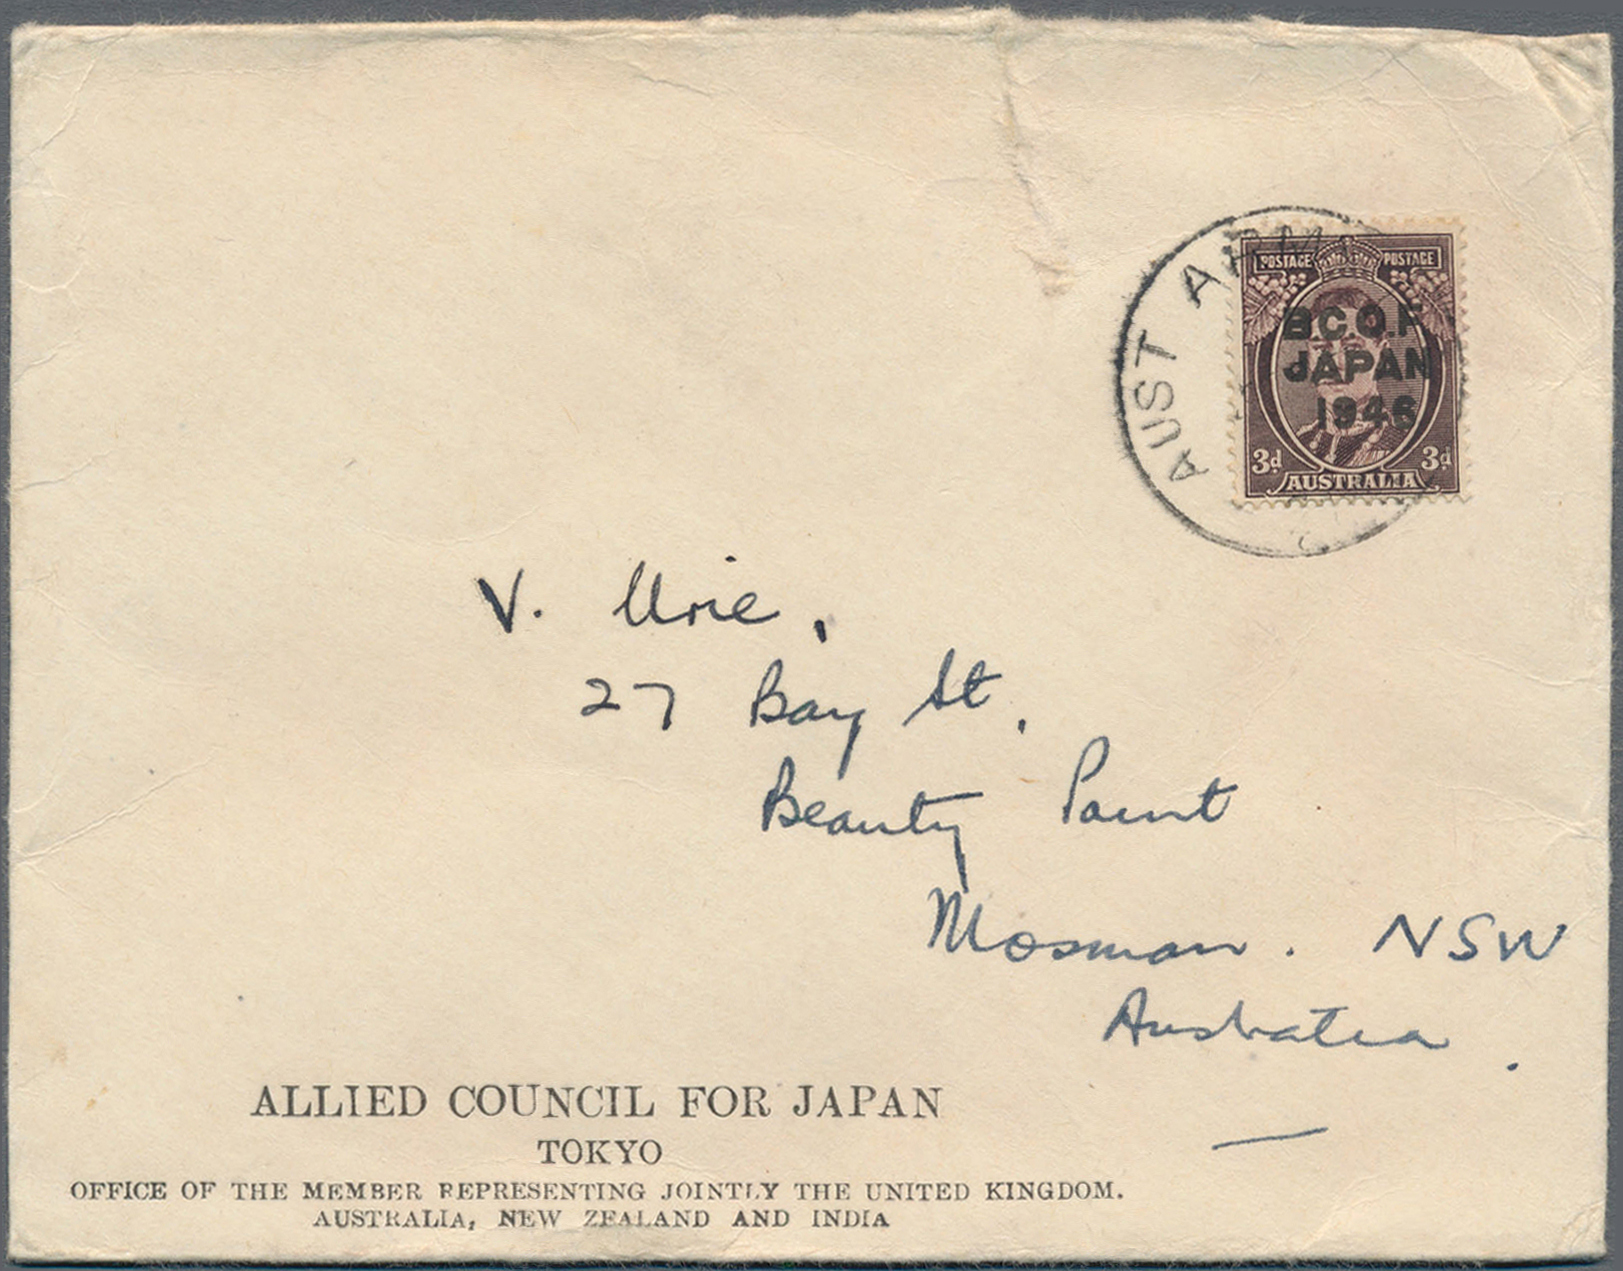 AUST ARM
POSTAGE POSTAGE
B.C.O.F
JAPAN
1946
3d 3d
AUSTRALIA
V. Urie,
27 Bay St,
Beauty Point
Mosman. NSW
Australia.
ALLIED COUNCIL FOR JAPAN
TOKYO
OFFICE OF THE MEMBER REPRESENTING JOINTLY THE UNITED KINGDOM.
AUSTRALIA, NEW ZEALAND AND INDIA